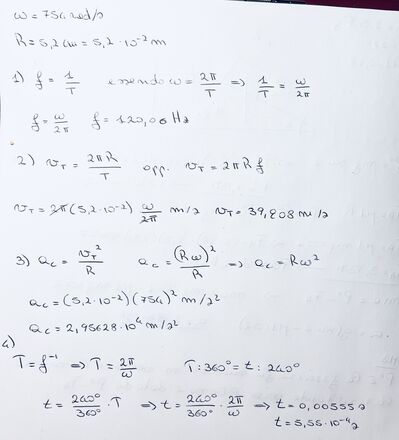 ω = 754 rad/s
R = 5,2 cm = 5,2 · 10⁻² m
1) f = 1/T essendo ω = 2π/T ⇒ 1/T = ω/2π
f = ω/2π f = 120,06 Hz
2) v_T = 2πR/T opp. v_T = 2πRf
v_T = 2π(5,2·10⁻²) ω/2π m/s v_T = 39,208 m/s
3) a_c = v_T²/R a_c = (Rω)²/R ⇒ a_c = Rω²
a_c = (5,2·10⁻²)(754)² m/s²
a_c = 2,95628·10⁴ m/s²
4)
T = f⁻¹ ⇒ T = 2π/ω T : 360° = t : 240°
t = 240°/360° · T ⇒ t = 240°/360° · 2π/ω ⇒ t = 0,00555 s
t = 5,55·10⁻⁴ s